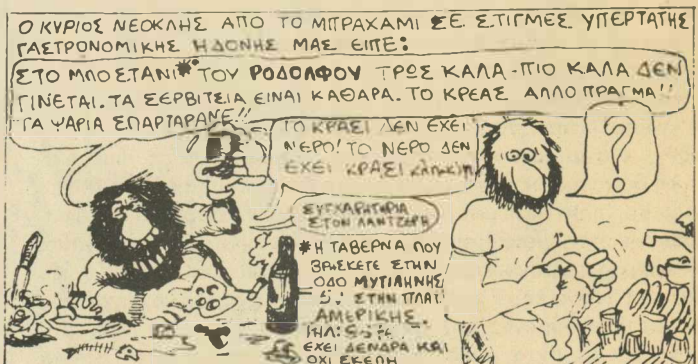 Ο ΚΥΡΙΟΣ ΝΕΟΚΛΗΣ ΑΠΟ ΤΟ ΜΠΡΑΧΑΜΙ ΣΕ ΣΤΙΓΜΕΣ ΥΠΕΡΤΑΤΗΣ
ΓΑΣΤΡΟΝΟΜΙΚΗΣ ΗΔΟΝΗΣ ΜΑΣ ΕΙΠΕ:
ΣΤΟ ΜΠΟΣΤΑΝΙ* ΤΟΥ ΡΟΔΟΛΦΟΥ ΤΡΩΣ ΚΑΛΑ-ΠΙΟ ΚΑΛΑ ΔΕΝ
ΓΙΝΕΤΑΙ. ΤΑ ΣΕΡΒΙΤΣΙΑ ΕΙΝΑΙ ΚΑΘΑΡΑ. ΤΟ ΚΡΕΑΣ ΑΛΛΟ ΠΡΑΓΜΑ!!
ΤΑ ΨΑΡΙΑ ΣΠΑΡΤΑΡΑΝΕ!!
ΤΟ ΚΡΑΣΙ ΔΕΝ ΕΧΕΙ
ΝΕΡΟ! ΤΟ ΝΕΡΟ ΔΕΝ
ΕΧΕΙ ΚΡΑΣΙ
?
ΣΥΓΧΑΡΗΤΗΡΙΑ
ΣΤΟΝ ΛΑΝΤΖΕΡΗ
*Η ΤΑΒΕΡΝΑ ΠΟΥ
ΒΡΙΣΚΕΤΕ ΣΤΗΝ
ΟΔΟ ΜΥΤΙΛΗΝΗΣ
ΣΤΗΝ ΠΛΑΤ.
ΑΜΕΡΙΚΗΣ.
ΤΗΛ:
ΕΧΕΙ ΔΕΝΔΡΑ ΚΑΙ
ΟΧΙ ΣΚΕΠΗ